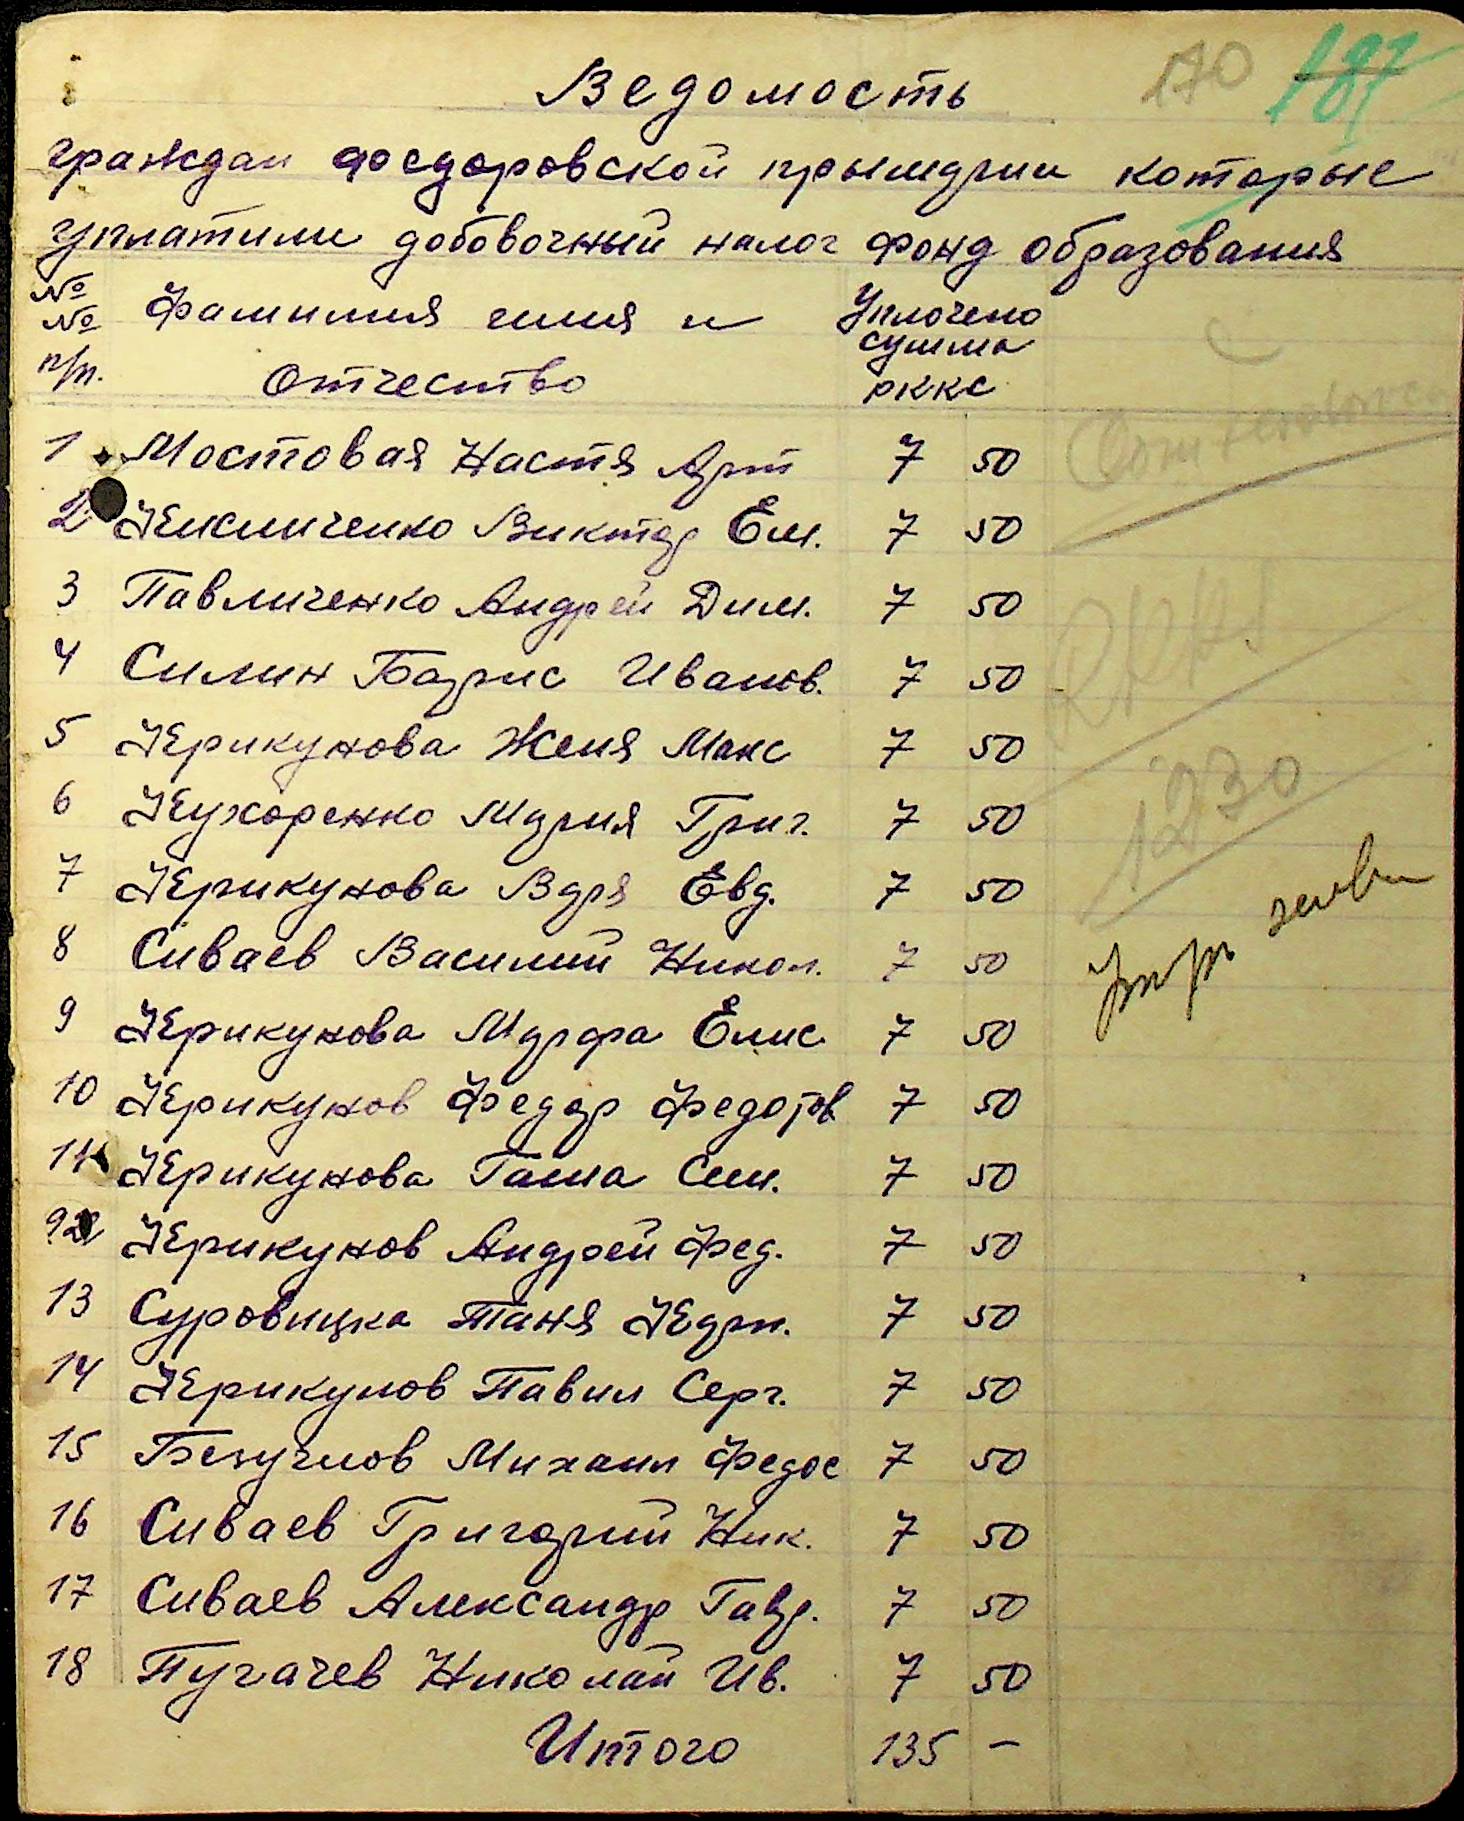 170 187
Ведомость
граждан федоровской прымэрии которые
уплатили добовочный налог фонд образования
№ № п/п. Фамилия имия и Отчество Уплочено сумма рккс
1 Мостовая Настя Арт 7 50
2 Кисличенко Виктор Ем. 7 50
3 Павличенко Андрей Дим. 7 50
4 Силин Борис Иванов. 7 50
5 Крикунова Женя Макс 7 50
6 Кухоренко Мария Григ. 7 50
7 Крикунова Варя Евд. 7 50
8 Сиваев Василий Никол. 7 50
9 Крикунова Марфа Елис. 7 50
10 Крикунов Федор Федотов 7 50
11 Крикунова Гаша Сем. 7 50
12 Крикунов Андрей Фед. 7 50
13 Суровицка Таня Кадрп. 7 50
14 Крикунов Павил Серг. 7 50
15 Безуглов Михаил Федос 7 50
16 Сиваев Григорий Ник. 7 50
17 Сиваев Александр Гавр. 7 50
18 Пугачев Николай Ив. 7 50
Итого 135 –
1230